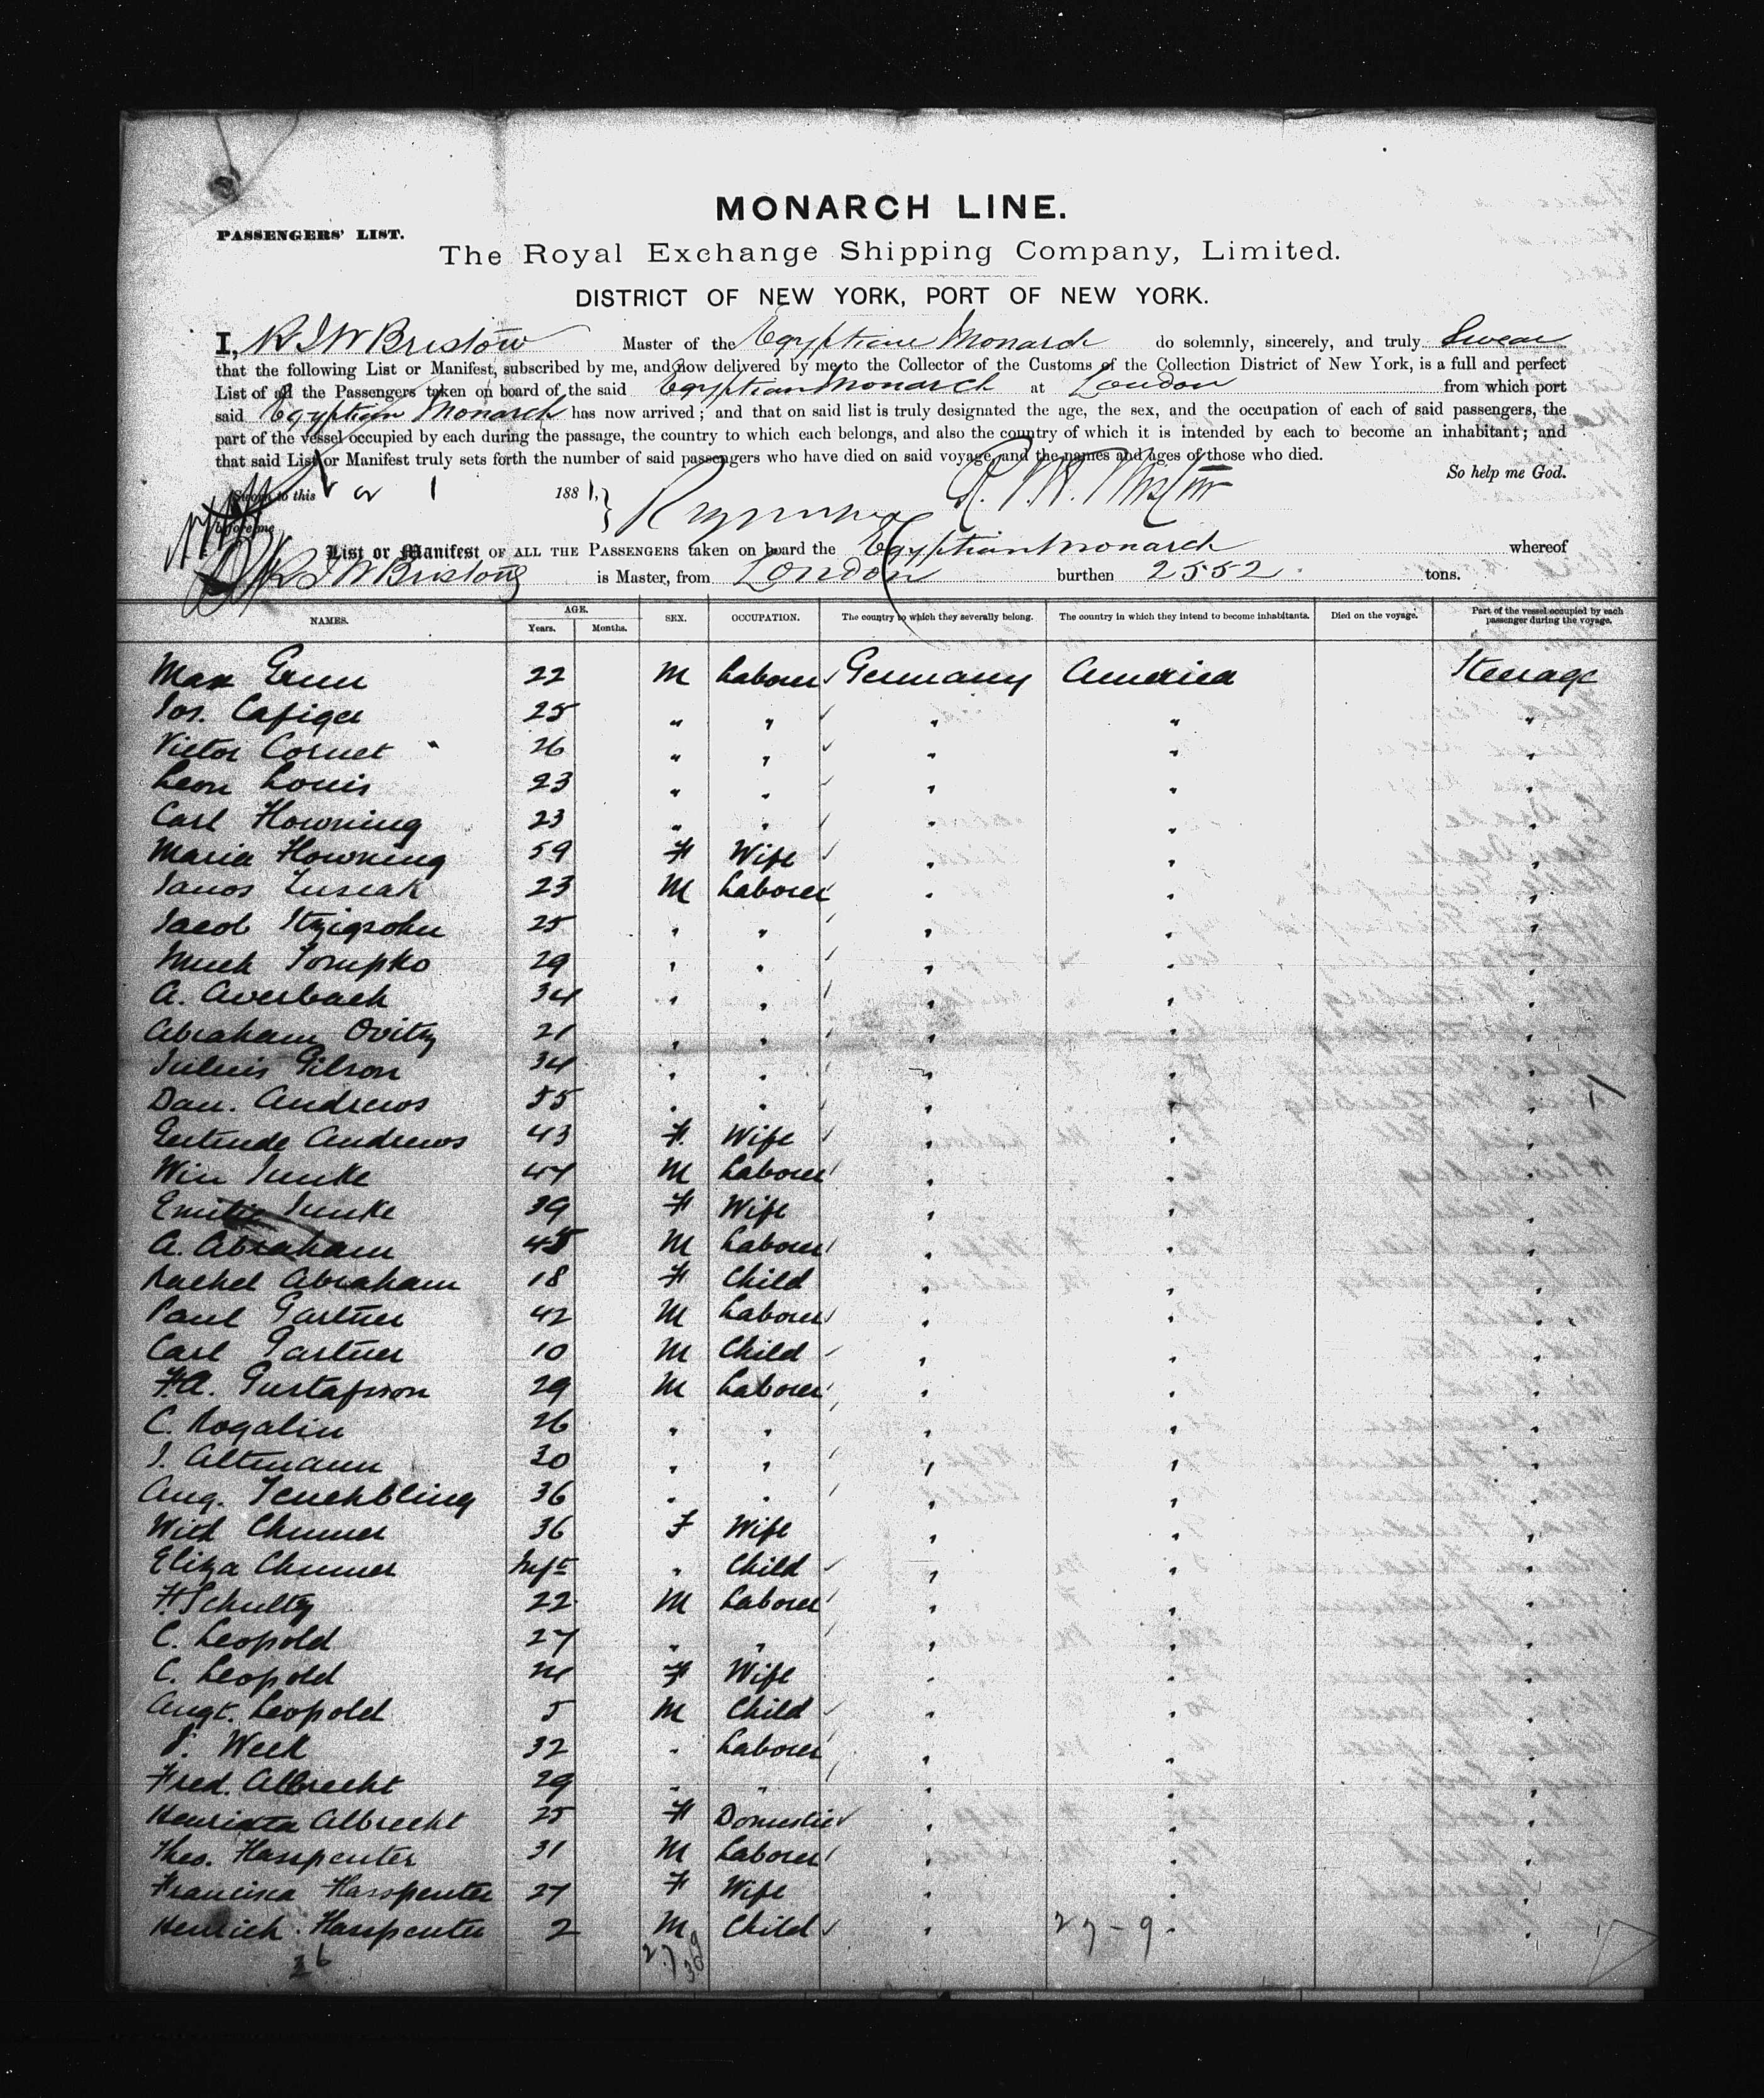 MONARCH LINE.
PASSENGERS' LIST.
The Royal Exchange Shipping Company, Limited.
DISTRICT OF NEW YORK, PORT OF NEW YORK.
I, R J W Bristow Master of the Egyptian Monarch do solemnly, sincerely, and truly Swear
that the following List or Manifest, subscribed by me, and now delivered by me to the Collector of the Customs of the Collection District of New York, is a full and perfect
List of all the Passengers taken on board of the said Egyptian Monarch at London from which port
said Egyptian Monarch has now arrived; and that on said list is truly designated the age, the sex, and the occupation of each of said passengers, the
part of the vessel occupied by each during the passage, the country to which each belongs, and also the country of which it is intended by each to become an inhabitant; and
that said List or Manifest truly sets forth the number of said passengers who have died on said voyage, and the names and ages of those who died.
So help me God.
Sworn to this 1881,
before me
List or Manifest OF ALL THE PASSENGERS taken on board the Egyptian Monarch whereof
R J W Bristow is Master, from London burthen 2552 tons.
NAMES. AGE. Years. Months. SEX. OCCUPATION. The country to which they severally belong. The country in which they intend to become inhabitants. Died on the voyage. Part of the vessel occupied by each passenger during the voyage.
Max 22 M Laborer Germany America Steerage
Jos. Cafiger 25 " " " " "
Victor Cornet 26 " " " " "
Leon Louis 23 " " " " "
Carl Howning 23 " " " " "
Maria Howning 59 F Wife " " "
Janos 23 M Laborer " " "
Jacob Itzigsohn 25 " " " " "
Tompko 29 " " " " "
A. Averbach 34 " " " " "
Abraham Ovitz 21 " " " " "
Julius Gilson 34 " " " " "
Dan. Andrews 55 " " " " "
Gertrude Andrews 43 F. Wife " " "
Wm Junke 47 M Laborer " " "
Emilie Junke 39 F Wife " " "
A. Abraham 45 M Laborer " " "
Rachel Abraham 18 F Child " " "
Paul Gartner 42 M Laborer " " "
Carl Gartner 10 M Child " " "
F.A. Gustafsson 29 M Laborer " " "
C. Rogalin 26 " " " " "
J. Altmann 30 " " " " "
Aug. 36 " " " " "
36 F Wife " " "
Eliza Inft " Child " " "
F. Schultz 22 M Laborer " " "
C. Leopold 27 " " " " "
C. Leopold 24 F Wife " " "
Augt. Leopold 5 M Child " " "
Week 32 " Laborer " " "
Fred. Albrecht 29 " " " " "
Henrietta Albrecht 25 F Domestic " " "
Theo. Haspenter 31 M Laborer " " "
Francisca Haspenter 27 F Wife " " "
Henrich Haspenter 2 M Child " 27-9 " "